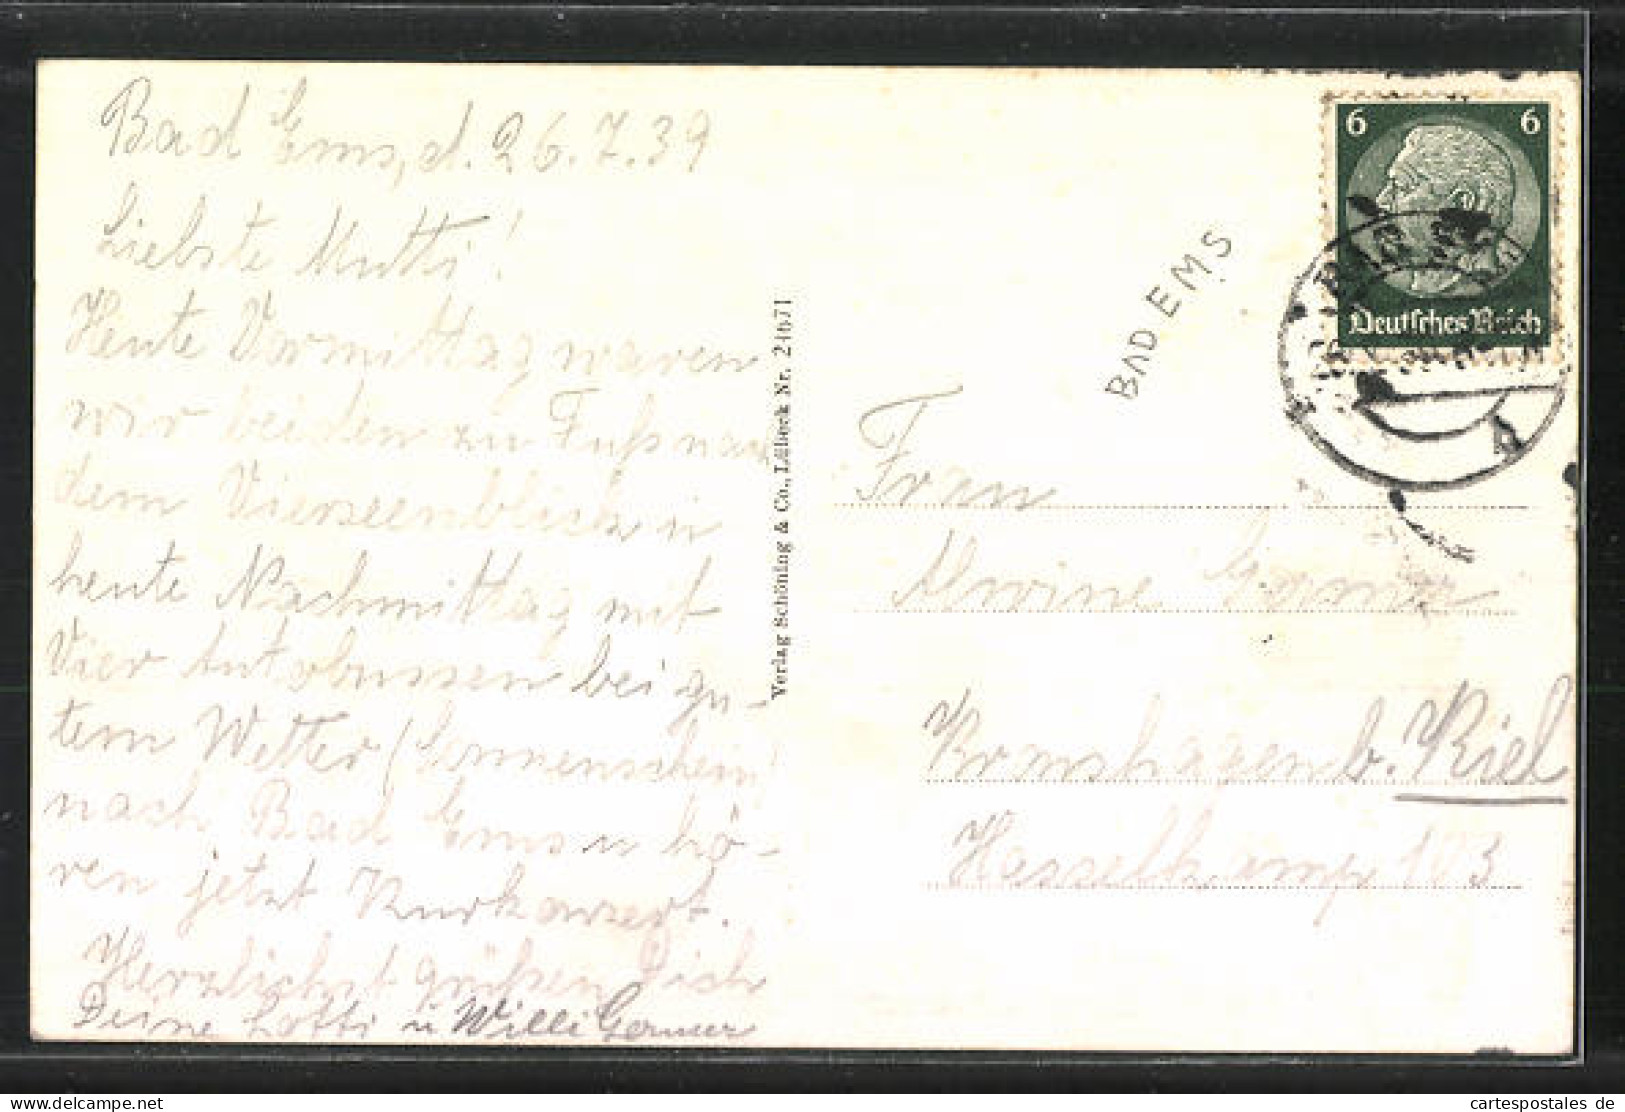 Bad Ems, d. 26.7.39
Liebste Mutti!
Heute Vormittag waren
wir beiden zu Fuß nach
dem Vierseenblick u
heute Nachmittag mit
Vier Autobussen bei gu-
tem Wetter (Sonnenschein)
nach Bad Ems u hö-
ren jetzt Kurkonzert.
Herzlichst grüßen Dich
Deine Lotti u Willi Germer
Verlag Schöning & Co., Lübeck Nr. 24671
BAD EMS
6 6
Deutsches Reich
BAD
Frau
Alwine
Kronshagen b. Kiel
Hasselkamp 103
cartespostales de